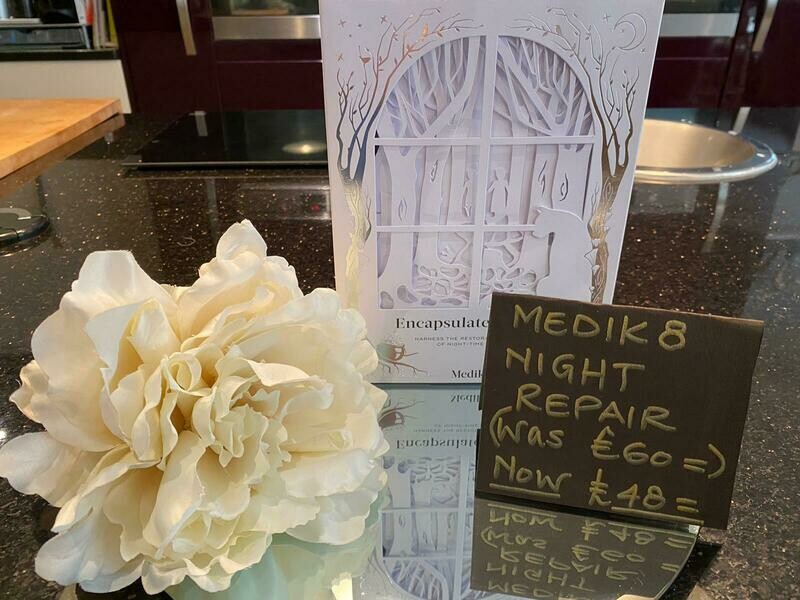 Encapsulate
HARNESS THE RESTOR
OF NIGHT-TIME
Medik
MEDIK8
NIGHT
REPAIR
(Was £60=)
Now £48=